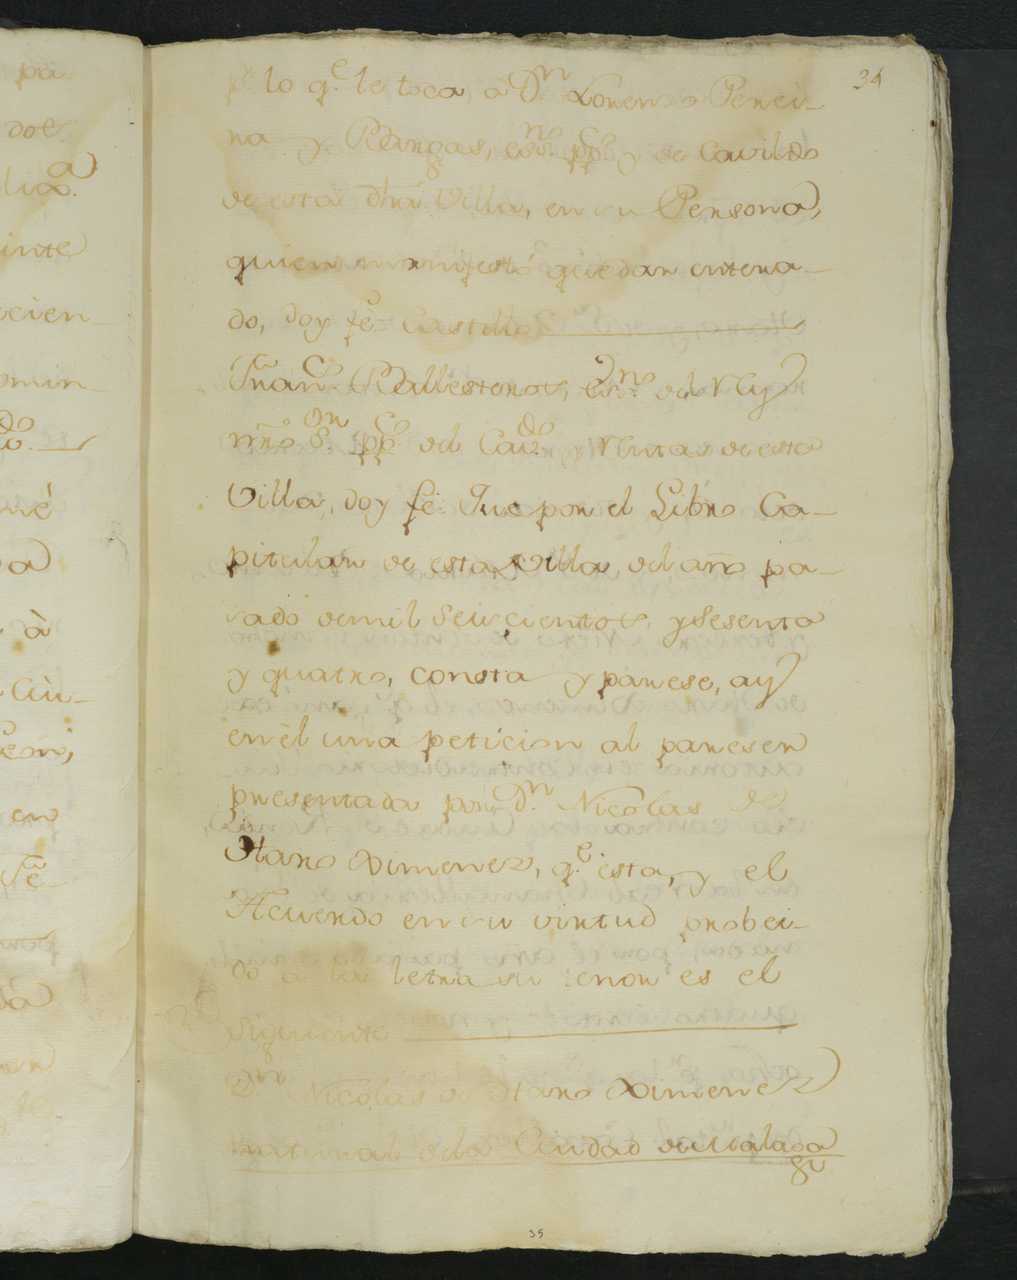 34
p.r lo q.e le toca, a D.n Lorenzo Perei-
na y Bargas, esn.no pp.co y de Cavildo
de esta dha Villa, en su Persona,
quien manifestó quedar entera-
do, doy fe= Castillo
Fran.co Ballesteros, es.no del Rey
nro S.or pp.co del Cav.do y Rentas de esta
Villa, doy fe: Que por el Libro Ca-
pitular de esta Villa, del año pa-
sado de mil Seiscientos, y sesenta
y quatro, consta y parese, ay
en èl una peticion al pareser
presentada por D.n Nicolas de
Haro Ximenez, q.e esta, y el
Acuerdo en su virtud probei-
do a la letra su tenor es el
Siguiente
D.n Nicolas de Haro Ximenez
natural dela Ciudad de Malaga
35
pa
dos
inte
cien-
do
a
à
Ciu-
en
fe